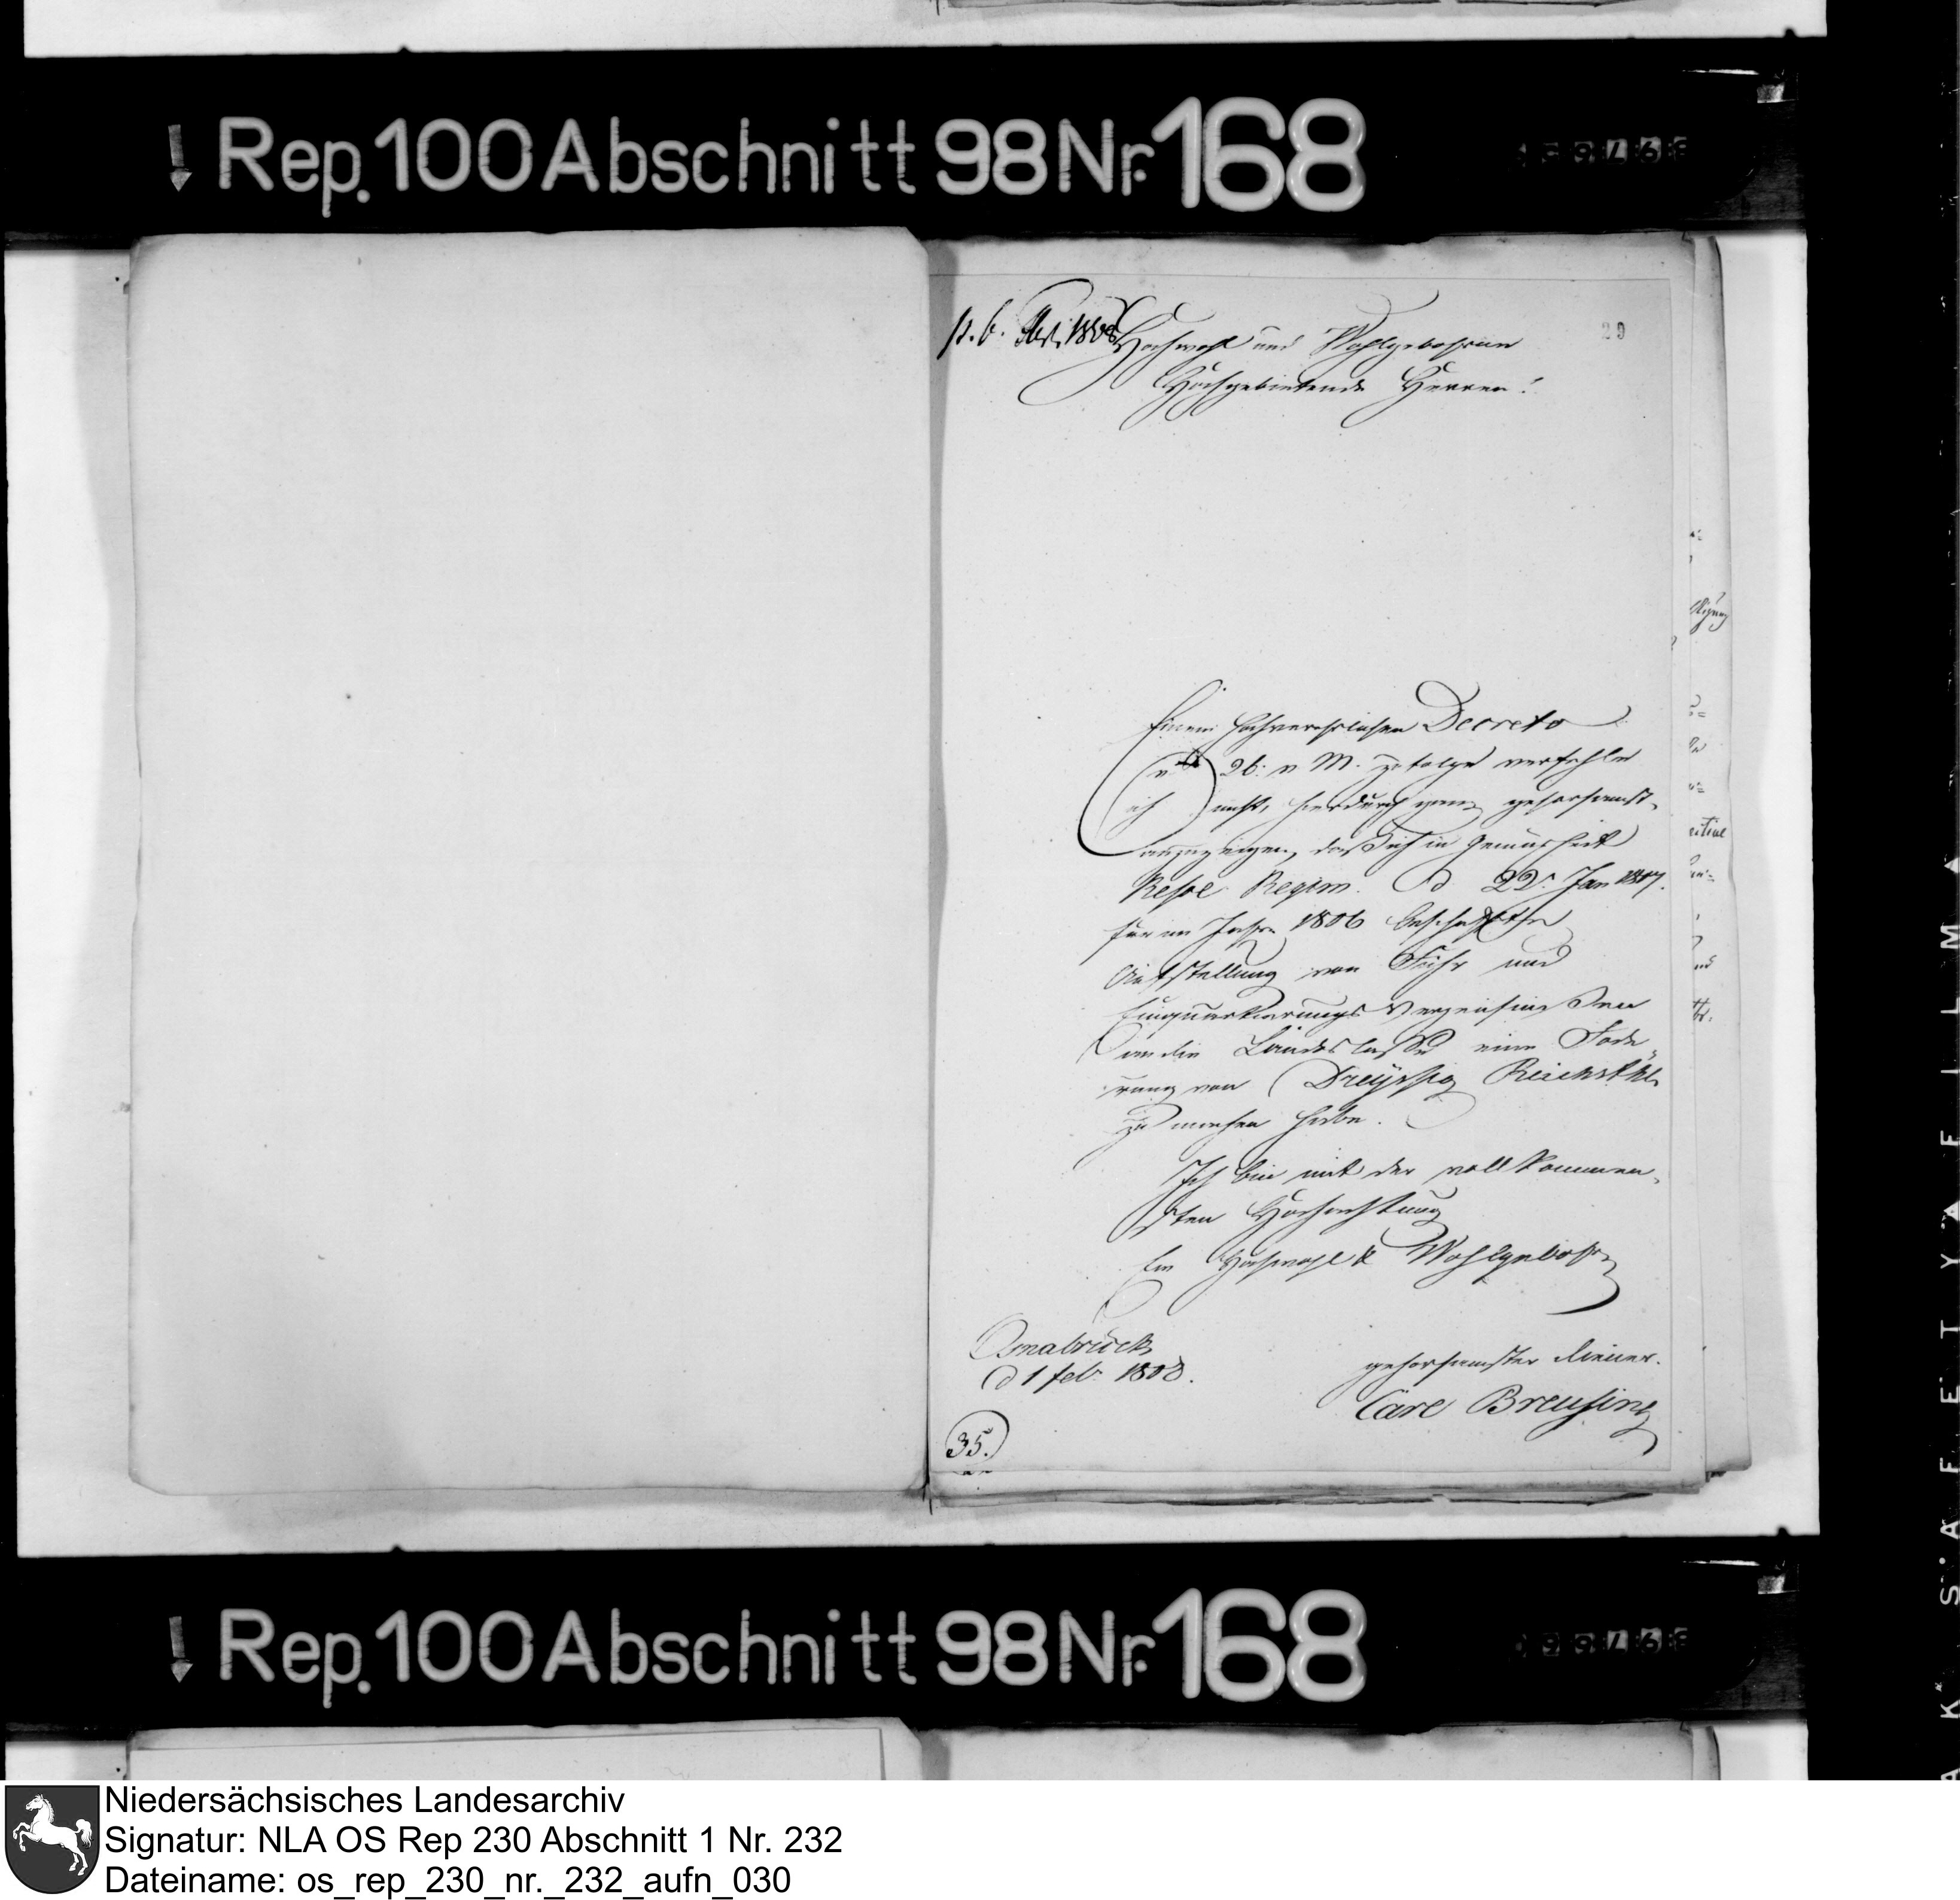 Rep. 100 Abschnitt 98 Nr. 168
p. 6. Febr. 1808
29
Hochwohl und Wohlgebohrne
Hochgebietende Herren!
Einem hochverehrlichen Decreto
26. v. M. zufolge verfehle
ich nicht, hierdurch ganz gehorsamst,
anzuzeigen, daß ich in Gemäsheit
Resol. Regim. d 22. Jan 1807.
für im Jahre 1806 beschaffte
Aufstellung von Fuhr und
Einquartierungs Verzeichnißen
an die Landeslasse eine Fode„
rung von Dreyssig Reichsthl.
zu machen habe.
Ich bin mit der vollkommen„
sten Hochachtung
Ew Hochwohl & Wohlgebohr
Osnabrück
d 1 feb. 1808.
gehorsamster Diener.
Carl Breusing
35.
Rep. 100 Abschnitt 98 Nr. 168
Niedersächsisches Landesarchiv
Signatur: NLA OS Rep 230 Abschnitt 1 Nr. 232
Dateiname: os_rep_230_nr._232_aufn_030